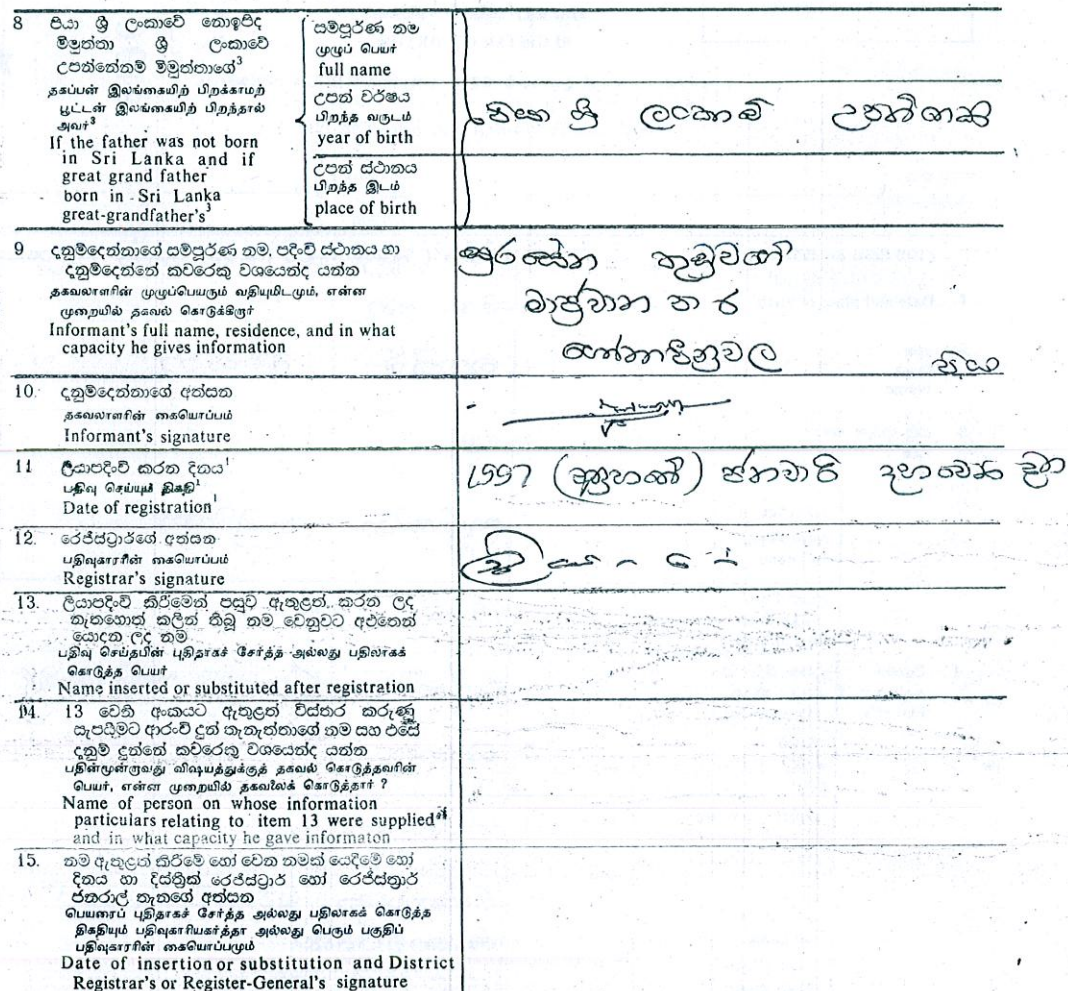 8 පියා ශ්‍රී ලංකාවේ නොඉපිද
මීමුත්තා ශ්‍රී ලංකාවේ
උපන්නේනම් මීමුත්තාගේ³
தகப்பன் இலங்கையிற் பிறக்காமற்
பூட்டன் இலங்கையிற் பிறந்தால்
அவர்³
If the father was not born
in Sri Lanka and if
great grand father
born in Sri Lanka
great-grandfather's³
සම්පූර්ණ නම
முழுப் பெயர்
full name
උපන් වර්ෂය
பிறந்த வருடம்
year of birth
උපන් ස්ථානය
பிறந்த இடம்
place of birth
පියා ශ්‍රී ලංකාවේ
9 දැනුම්දෙන්නාගේ සම්පූර්ණ නම, පදිංචි ස්ථානය හා
දැනුම්දෙන්නේ කවරෙකු වශයෙන්ද යන්න
தகவலாளரின் முழுப்பெயரும் வதியுமிடமும், என்ன
முறையில் தகவல் கொடுக்கிறார்
Informant's full name, residence, and in what
capacity he gives information
තුඩුවගේ
ගෝනාපීනුවල
පියා
10. දැනුම්දෙන්නාගේ අත්සන
தகவலாளரின் கையொப்பம்
Informant's signature
11 ලියාපදිංචි කරන දිනය¹
பதிவு செய்யும் திகதி¹
Date of registration¹
1997 ජනවාරි දහවෙනි දින
12. රෙජිස්ට්‍රාර්ගේ අත්සන
பதிவுகாரரின் கையொப்பம்
Registrar's signature
13. ලියාපදිංචි කිරීමෙන් පසුව ඇතුළත් කරන ලද
නැතහොත් කලින් තිබූ නම වෙනුවට අළුතෙන්
යොදන ලද නම
பதிவு செய்தபின் புதிதாகச் சேர்த்த அல்லது பதிலாகக்
கொடுத்த பெயர்
Name inserted or substituted after registration
14. 13 වෙනි අංකයට ඇතුළත් විස්තර කරුණු
සැපයීමට ආරංචි දුන් තැනැත්තාගේ නම සහ එසේ
දැනුම් දුන්නේ කවරෙකු වශයෙන්ද යන්න
பதின்மூன்றாவது விஷயத்துக்குத் தகவல் கொடுத்தவரின்
பெயர், என்ன முறையில் தகவலைக் கொடுத்தார் ?
Name of person on whose information
particulars relating to item 13 were supplied
and in what capacity he gave informaton
15. නම ඇතුළත් කිරීමේ හෝ වෙන නමක් යෙදීමේ හෝ
දිනය හා දිස්ත්‍රික් රෙජිස්ට්‍රාර් හෝ රෙජිස්ත්‍රාර්
ජනරාල් තැනගේ අත්සන
பெயரைப் புதிதாகச் சேர்த்த அல்லது பதிலாகக் கொடுத்த
திகதியும் பதிவுகாரியகர்த்தா அல்லது பெரும் பகுதிப்
பதிவுகாரரின் கையொப்பமும்
Date of insertion or substitution and District
Registrar's or Register-General's signature